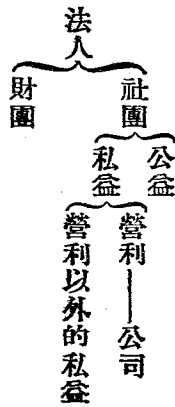 法人
社團
財團
公益
私益
營利——公司
營利以外的私益